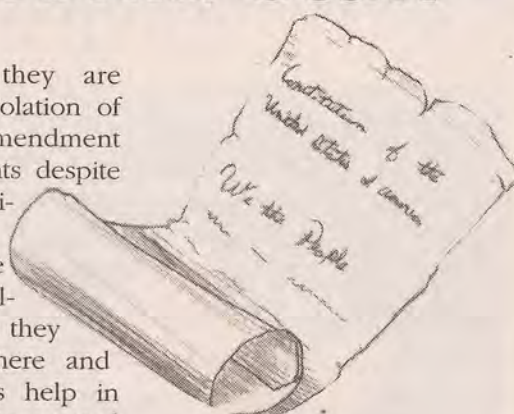 they are
olation of
mendment
ts despite
i-
e
l-
they
here and
s help in
Constitution of the
United States of America
We the People